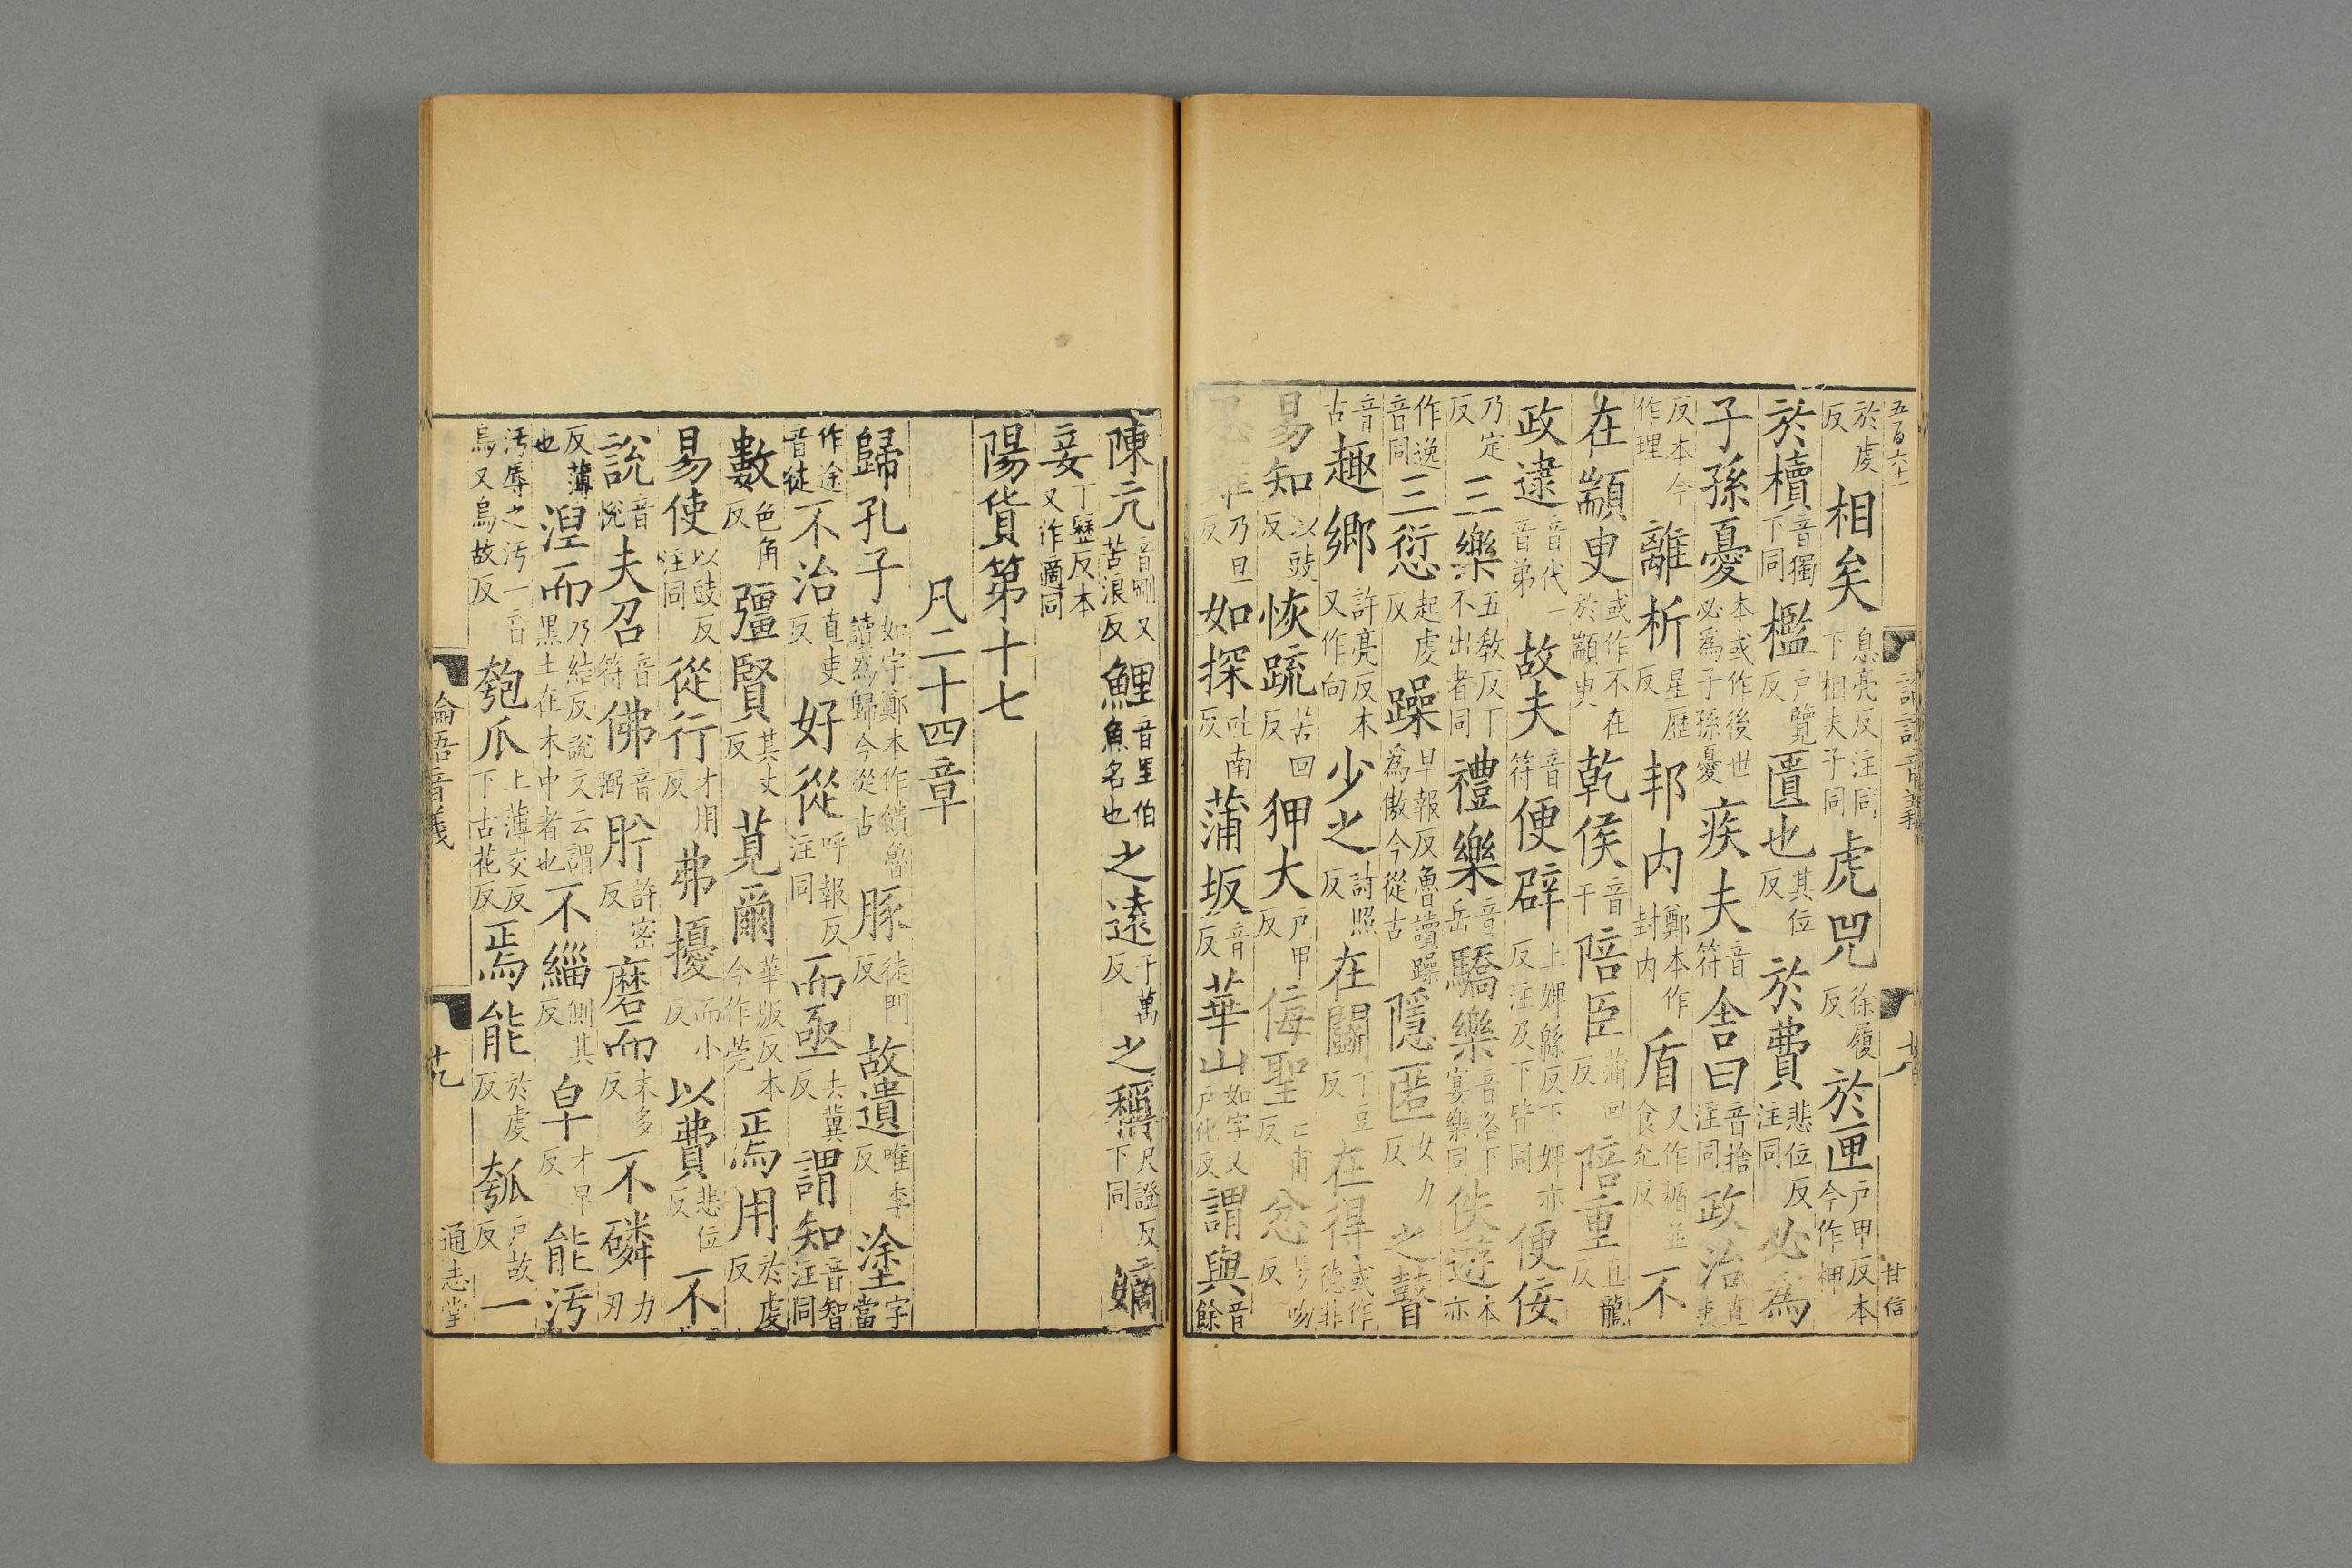 五百六十一
於虔反相矣息亮反注同下相夫子同虎兕徐履反於匣戶甲反本今作柙
於櫝音獨下同檻戶覽反匱也其位反於費悲位反注同必為
子孫憂本或作後世必為子孫憂疾夫音符舍曰音捨注同政治直吏
反本今作理離析星歷反邦內鄭本作封內盾又作楯並食允反不
在顓臾或作不在於顓臾乾侯音干陪臣蒲回反陪重直龍反
政逮音代一音弟故夫音符便辟上婢緜反下婢亦反注及下皆同便佞
乃定反三樂五教反下不出者同禮樂音岳驕樂音洛下宴樂同佚遊本亦
作逸音同三愆起虔反躁早報反魯讀躁為傲今從古隱匿女力反之瞽
音古趣鄉許亮反又作向少之詩照反在鬭丁豆反在得或作德非
易知以豉反恢疏苦回反狎大戶甲反侮聖亡甫反忿芳吻反
乃旦反如探吐南反蒲坂音反華山如字又戶化反謂與音餘
論語音義
十八
甘信
陳亢音剛又苦浪反鯉音里伯魚名也之遠于萬反之稱尺證反下同嫡
妾丁歷反本又作適同
陽貨第十七
凡二十四章
歸孔子如字鄭本作饋魯讀為歸今從古豚徒門反故遺唯季反塗字當
作途音徒不治直吏反好從呼報反注同而亟去冀反謂知音智注同
數色角反彊賢其丈反莧爾華版反本今作莞焉用於虔反
易使以豉反注同從行才用反弗擾而小反以費悲位反不
說音悅夫召音符佛音弼肸許密反磨而末多反不磷力刃
反薄也涅而乃結反說文云謂黑土在木中者也不緇側其反皁才早反能汚
汚辱之汚一音烏又烏故反匏瓜上薄交反下古花反焉能於虔反瓠戶故反一
論語音義
十九
通志堂